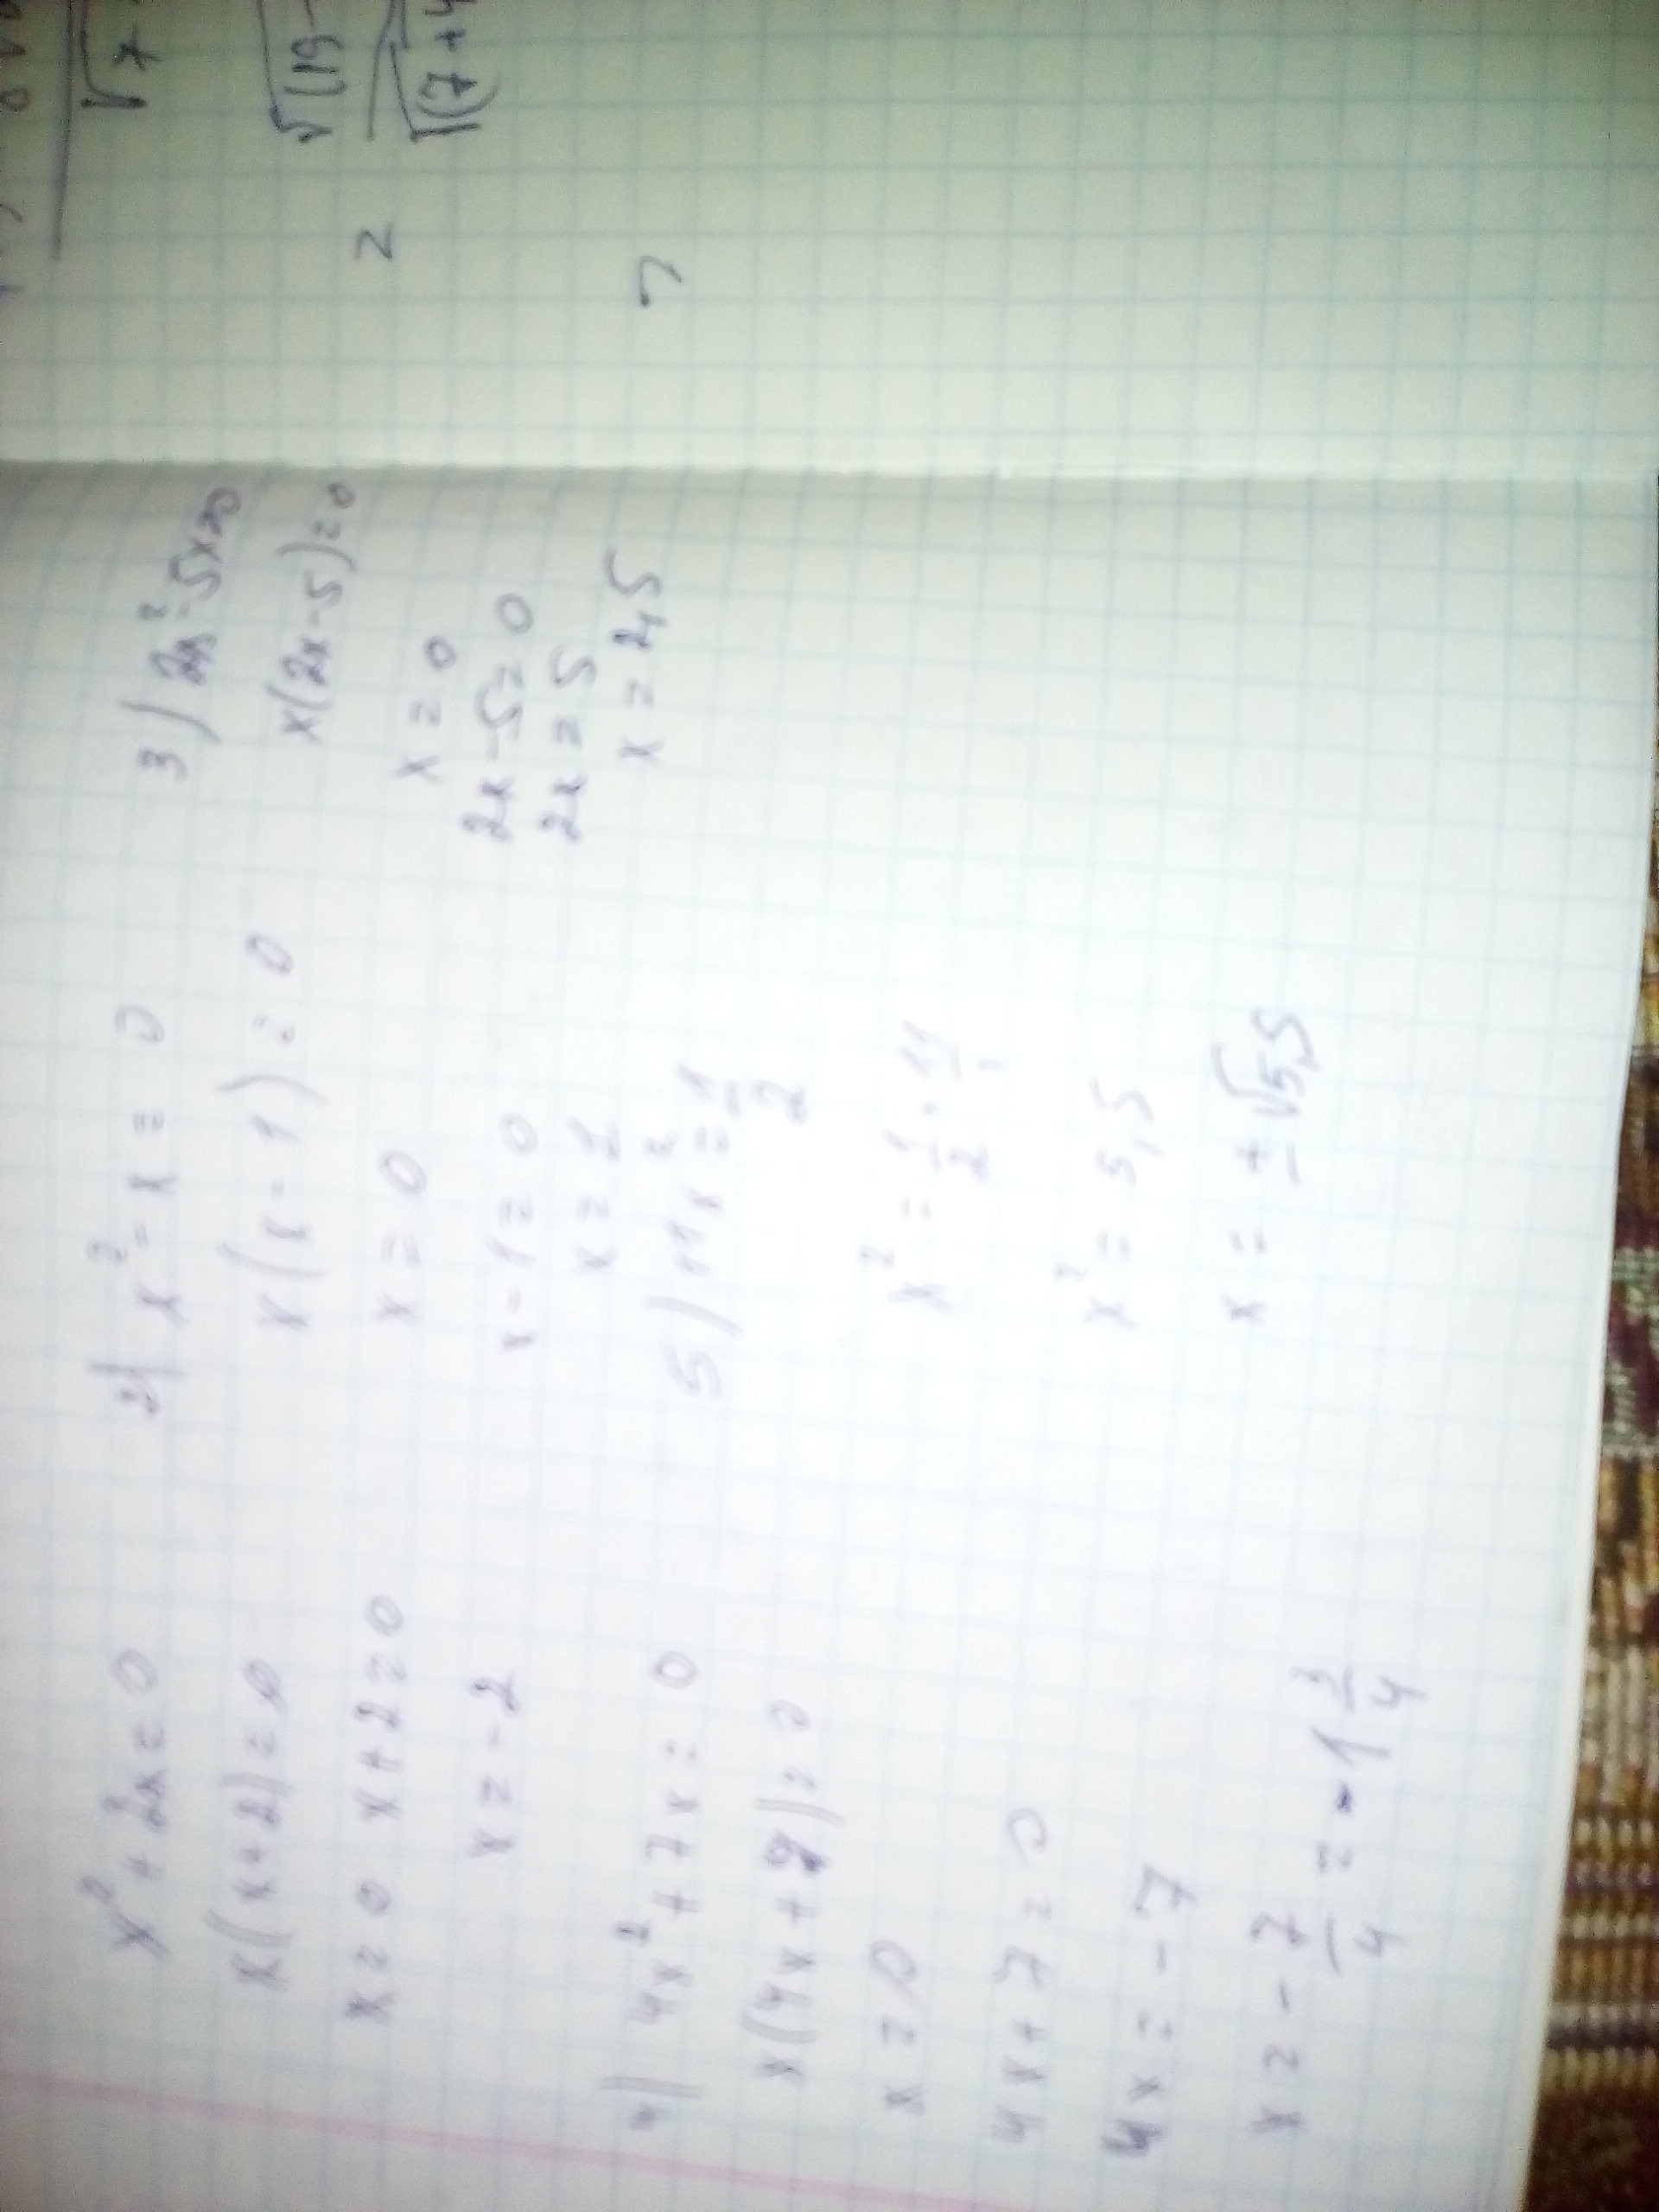 x² + 2x = 0
x(x+2) = 0
x = 0 x + 2 = 0
x = -2
2) x² - x = 0
x(x - 1) = 0
x = 0
x - 1 = 0
x = 1
3) 2x² - 5x = 0
x(2x - 5) = 0
x = 0
2x - 5 = 0
2x = 5
x = 2,5
4) 4x² + 7x = 0
x(4x + 7) = 0
x = 0
4x + 7 = 0
4x = -7
x = -7/4 = -1 3/4
5) 11x² = 1/2
x² = 1/2 · 11/1
x² = 5,5
x = ±√5,5
√7
√(19-
√(7+4